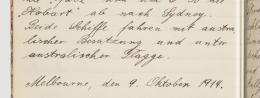 "Hobart" ab nach Sydney.
Beide Schiffe fahren mit austra-
lischer Besatzung und unter
australischer Flagge.
Melbourne, den 9. Oktober 1914.